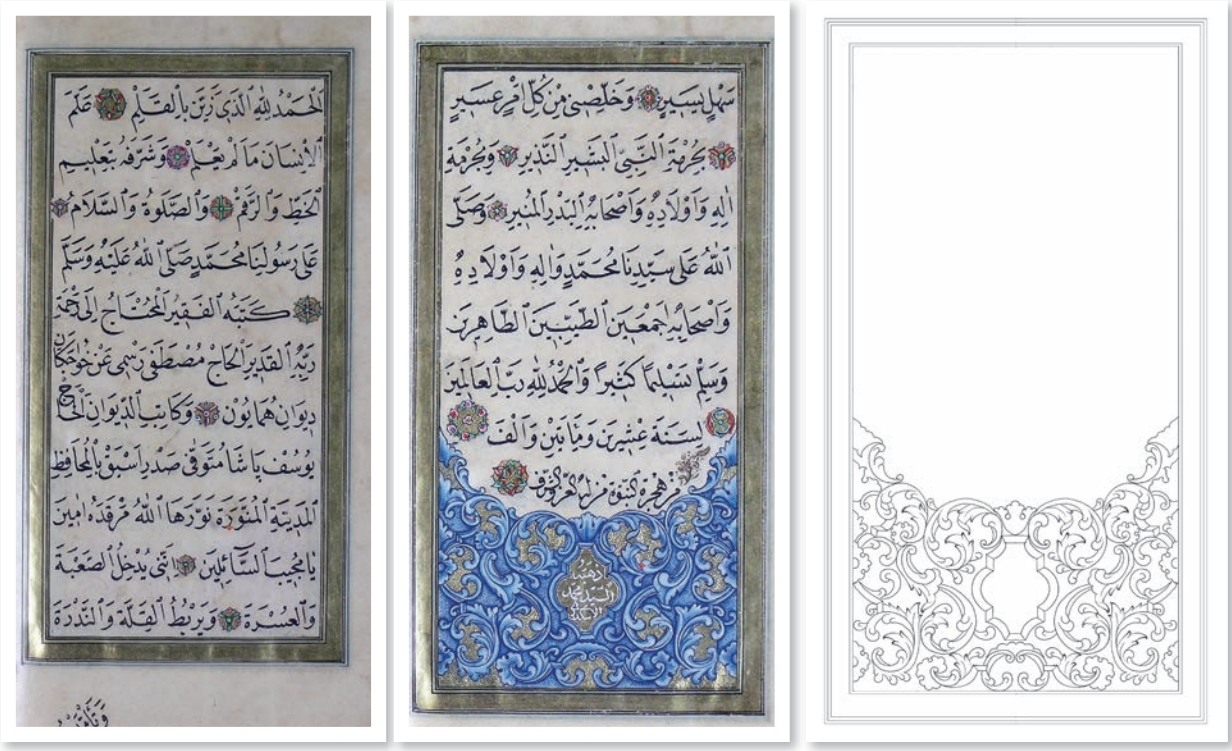 اَلْحَمْدُ لِلّٰهِ الَّذٖى زَيَّنَ بِالْقَلَمِ عَلَّمَ
الْاِنْسَانَ مَا لَمْ يَعْلَمْ وَشَرَّفَهُ بِتَعْلٖيمِ
الْخَطِّ وَالرَّقَمِ وَالصَّلٰوةُ وَالسَّلَامُ
عَلٰى رَسُولِنَا مُحَمَّدٍ صَلَّى اللّٰهُ عَلَيْهِ وَسَلَّمَ
كَتَبَهُ الْفَقٖيرُ الْمُحْتَاجُ اِلٰى رَحْمَةِ
رَبِّهِ الْقَدٖيرِ الْحَاجْ مُصْطَفٰى رَسْمٖى عَنْ خَوَاجَكَانِ
دٖيوَانِ هُمَايُونْ وَكَاتِبِ الدّٖيوَانِ الْحَاجْ
يُوسُفْ پَاشَا مُتَوَفّٰى صَدْرِ اَسْبَقْ بِالْمُحَافِظِ
الْمَدٖينَةِ الْمُنَوَّرَةِ نَوَّرَهَا اللّٰهُ مَرْقَدَهُ اٰمٖينَ
يَا مُجٖيبَ السَّآئِلٖينَ اِنَّنٖى يُدْخِلُ الصَّعْبَةَ
وَالْعُسْرَةَ وَيَرْبُطُ الْقِلَّةَ وَالنُّدْرَةَ
سَهْلٍ يَسٖيرٍ وَخَلِّصْنٖى مِنْ كُلِّ اَمْرٍ عَسٖيرٍ
بِحُرْمَةِ النَّبِىِّ الْبَشٖيرِ النَّذٖيرِ وَبِحُرْمَةِ
اٰلِهِ وَاَوْلَادِهِ وَاَصْحَابِهِ الْبَدْرِ الْمُنٖيرِ وَصَلَّى
اللّٰهُ عَلٰى سَيِّدِنَا مُحَمَّدٍ وَاٰلِهِ وَاَوْلَادِهِ
وَاَصْحَابِهِ اَجْمَعٖينَ الطَّيِّبٖينَ الطَّاهِرٖينَ
وَسَلِّمْ تَسْلٖيمًا كَثٖيرًا وَالْحَمْدُ لِلّٰهِ رَبِّ الْعَالَمٖينَ
لِسَنَةِ عِشْرٖينَ وَمِاَتَيْنِ وَاَلْفْ
مِنْ هِجْرَةِ النُّبُوَّةِ مَنْ لَهُ الْعِزُّ وَالشَّرَفُ
ذهبه
السيد محمد